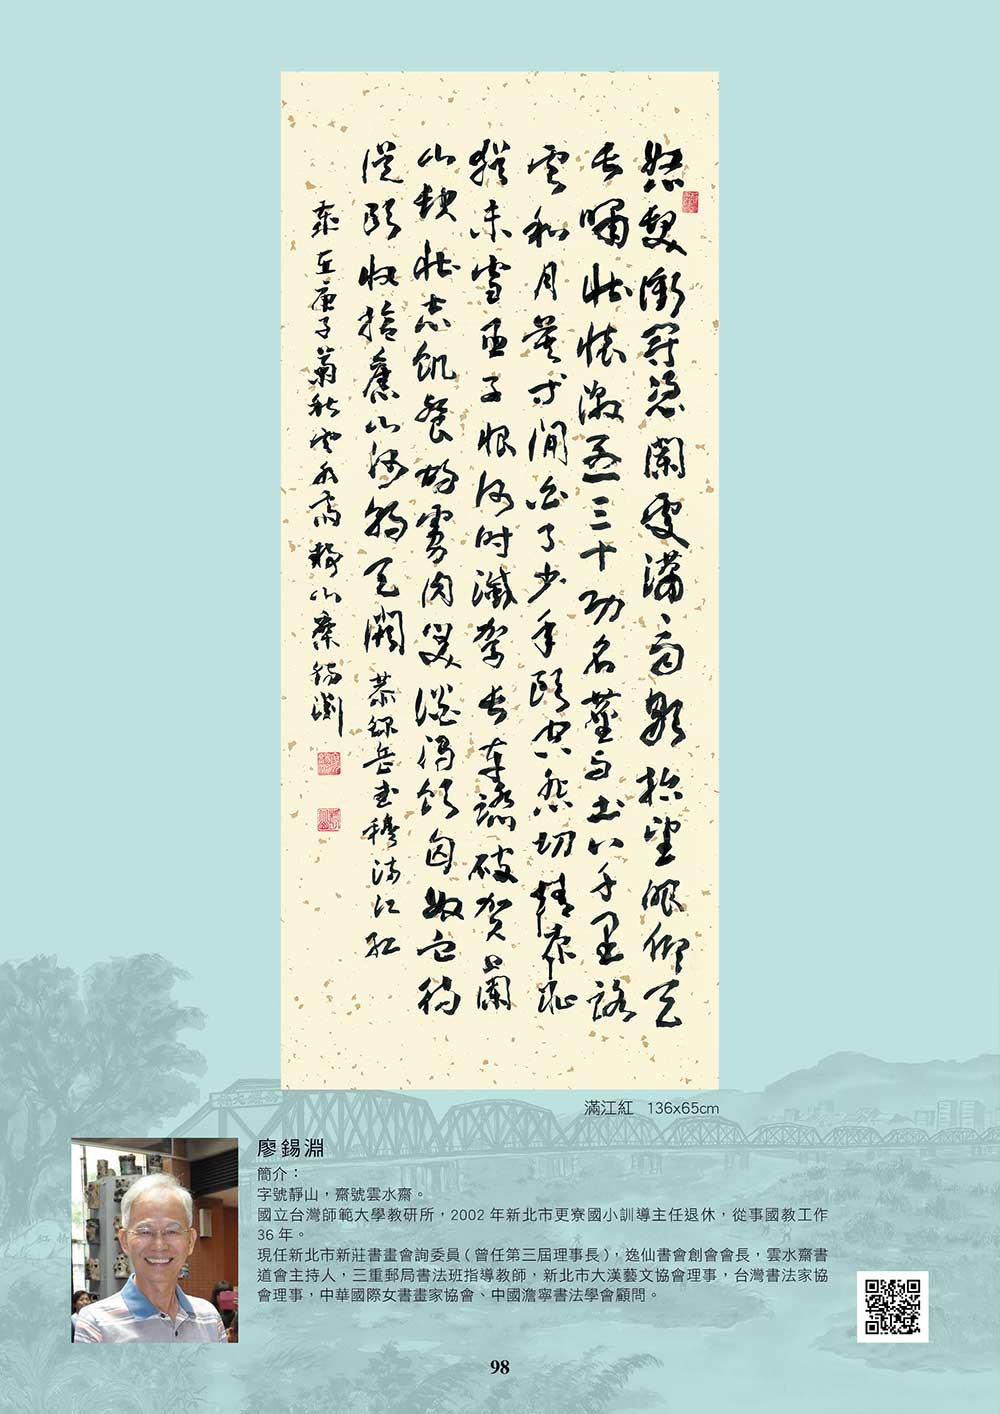 怒髮衝冠憑闌處瀟、雨歇抬望眼仰天
長嘯壯懷激烈三十功名塵与土八千里路
雲和月莫等閒白了少年頭空悲切靖康恥
猶未雪臣子恨何時滅駕長車踏破賀蘭
山缺壯志飢餐胡虜肉笑談渴飲匈奴血待
從頭收拾舊山河朝天闕 恭錄岳武穆滿江紅
歲在庚子菊秋雲水齋靜山廖錫淵
滿江紅 136x65cm
廖錫淵
簡介：
字號靜山，齋號雲水齋。
國立台灣師範大學教研所，2002 年新北市更寮國小訓導主任退休，從事國教工作
36 年。
現任新北市新莊書畫會詢委員（曾任第三屆理事長），逸仙書會創會會長，雲水齋書
道會主持人，三重郵局書法班指導教師，新北市大漢藝文協會理事，台灣書法家協
會理事，中華國際女書畫家協會、中國澹寧書法學會顧問。
98